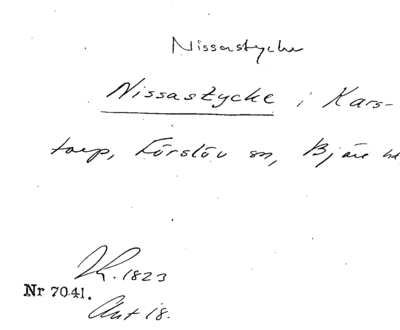 Nissastycke
Nissastycke i Kars-
torp, Förslöv sn, Bjäre hd
1823
Nr 7041.
Akt 18.